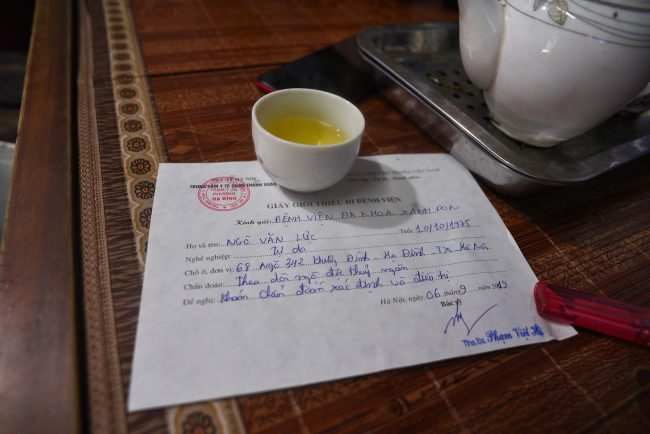 SỞ Y TẾ HÀ NỘI
TRUNG TÂM Y TẾ QUẬN THANH XUÂN
TRẠM Y TẾ
PHƯỜNG
HẠ ĐÌNH
GIẤY GIỚI THIỆU ĐI BỆNH VIỆN
Kính gửi: BỆNH VIỆN ĐA KHOA XANH PON
Họ và tên: NGÔ VĂN LỰC Tuổi: 10/10/1975
Nghề nghiệp: Tự do
Chỗ ở, đơn vị: 68 Ngõ 342 Khương Đình Hạ Đình TX Hà Nội
Chẩn đoán: Theo dõi ngộ độc thuỷ ngân
Đề nghị: Khám chẩn đoán xác định và điều trị
Hà Nội, ngày 06 tháng 9 năm 2019
Bác sỹ
Ths.Bs. Phạm Việt Hà